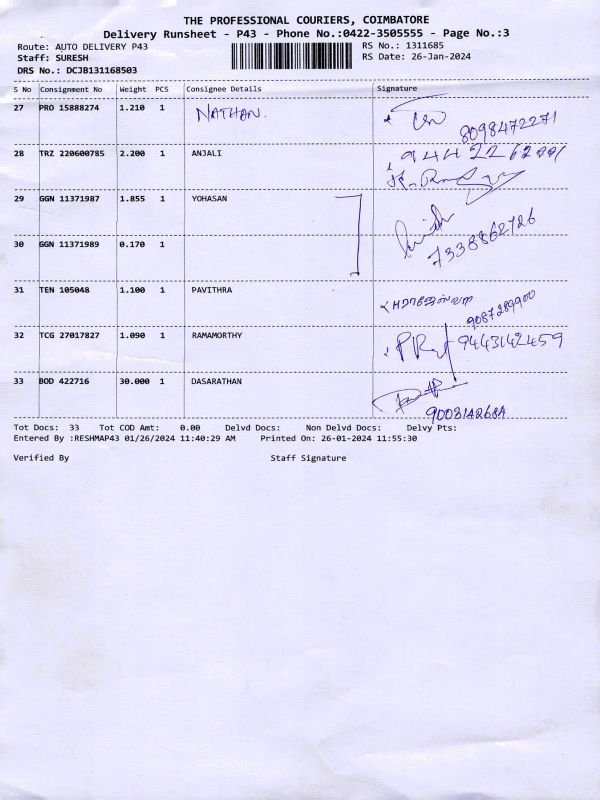 THE PROFESSIONAL COURIERS, COIMBATORE
Delivery Runsheet - P43 - Phone No.:0422-3505555 - Page No.:3
Route: AUTO DELIVERY P43 RS No.: 1311685
Staff: SURESH RS Date: 26-Jan-2024
DRS No.: DCJB131168503
S No Consignment No Weight PCS Consignee Details Signature
27 PRO 15888274 1.210 1 NATHAN.
8098472271
28 TRZ 220600785 2.200 1 ANJALI
29 GGN 11371987 1.855 1 YOHASAN
7338862726
30 GGN 11371989 0.170 1
31 TEN 105048 1.100 1 PAVITHRA
9087289900
32 TCG 27017827 1.090 1 RAMAMORTHY 9443142459
33 BOD 422716 30.000 1 DASARATHAN
Tot Docs: 33 Tot COD Amt: 0.00 Delvd Docs: Non Delvd Docs: Delvy Pts:
Entered By :RESHMAP43 01/26/2024 11:40:29 AM Printed On: 26-01-2024 11:55:30
Verified By Staff Signature